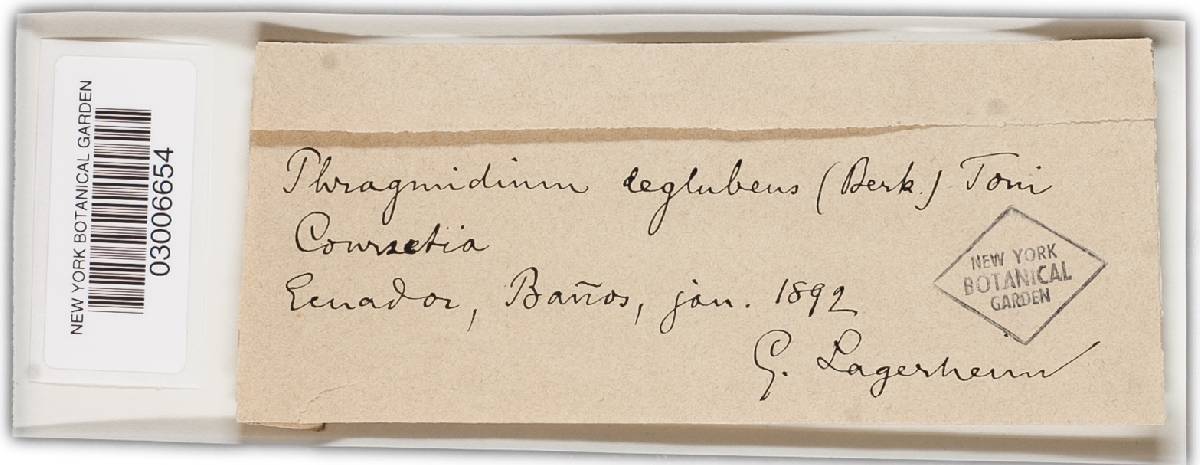 NEW YORK BOTANICAL GARDEN
03006654
Phragmidium deglubens (Berk.) Toni
Coursetia
Ecuador, Baños, jan. 1892
G. Lagerheim
NEW YORK
BOTANICAL
GARDEN